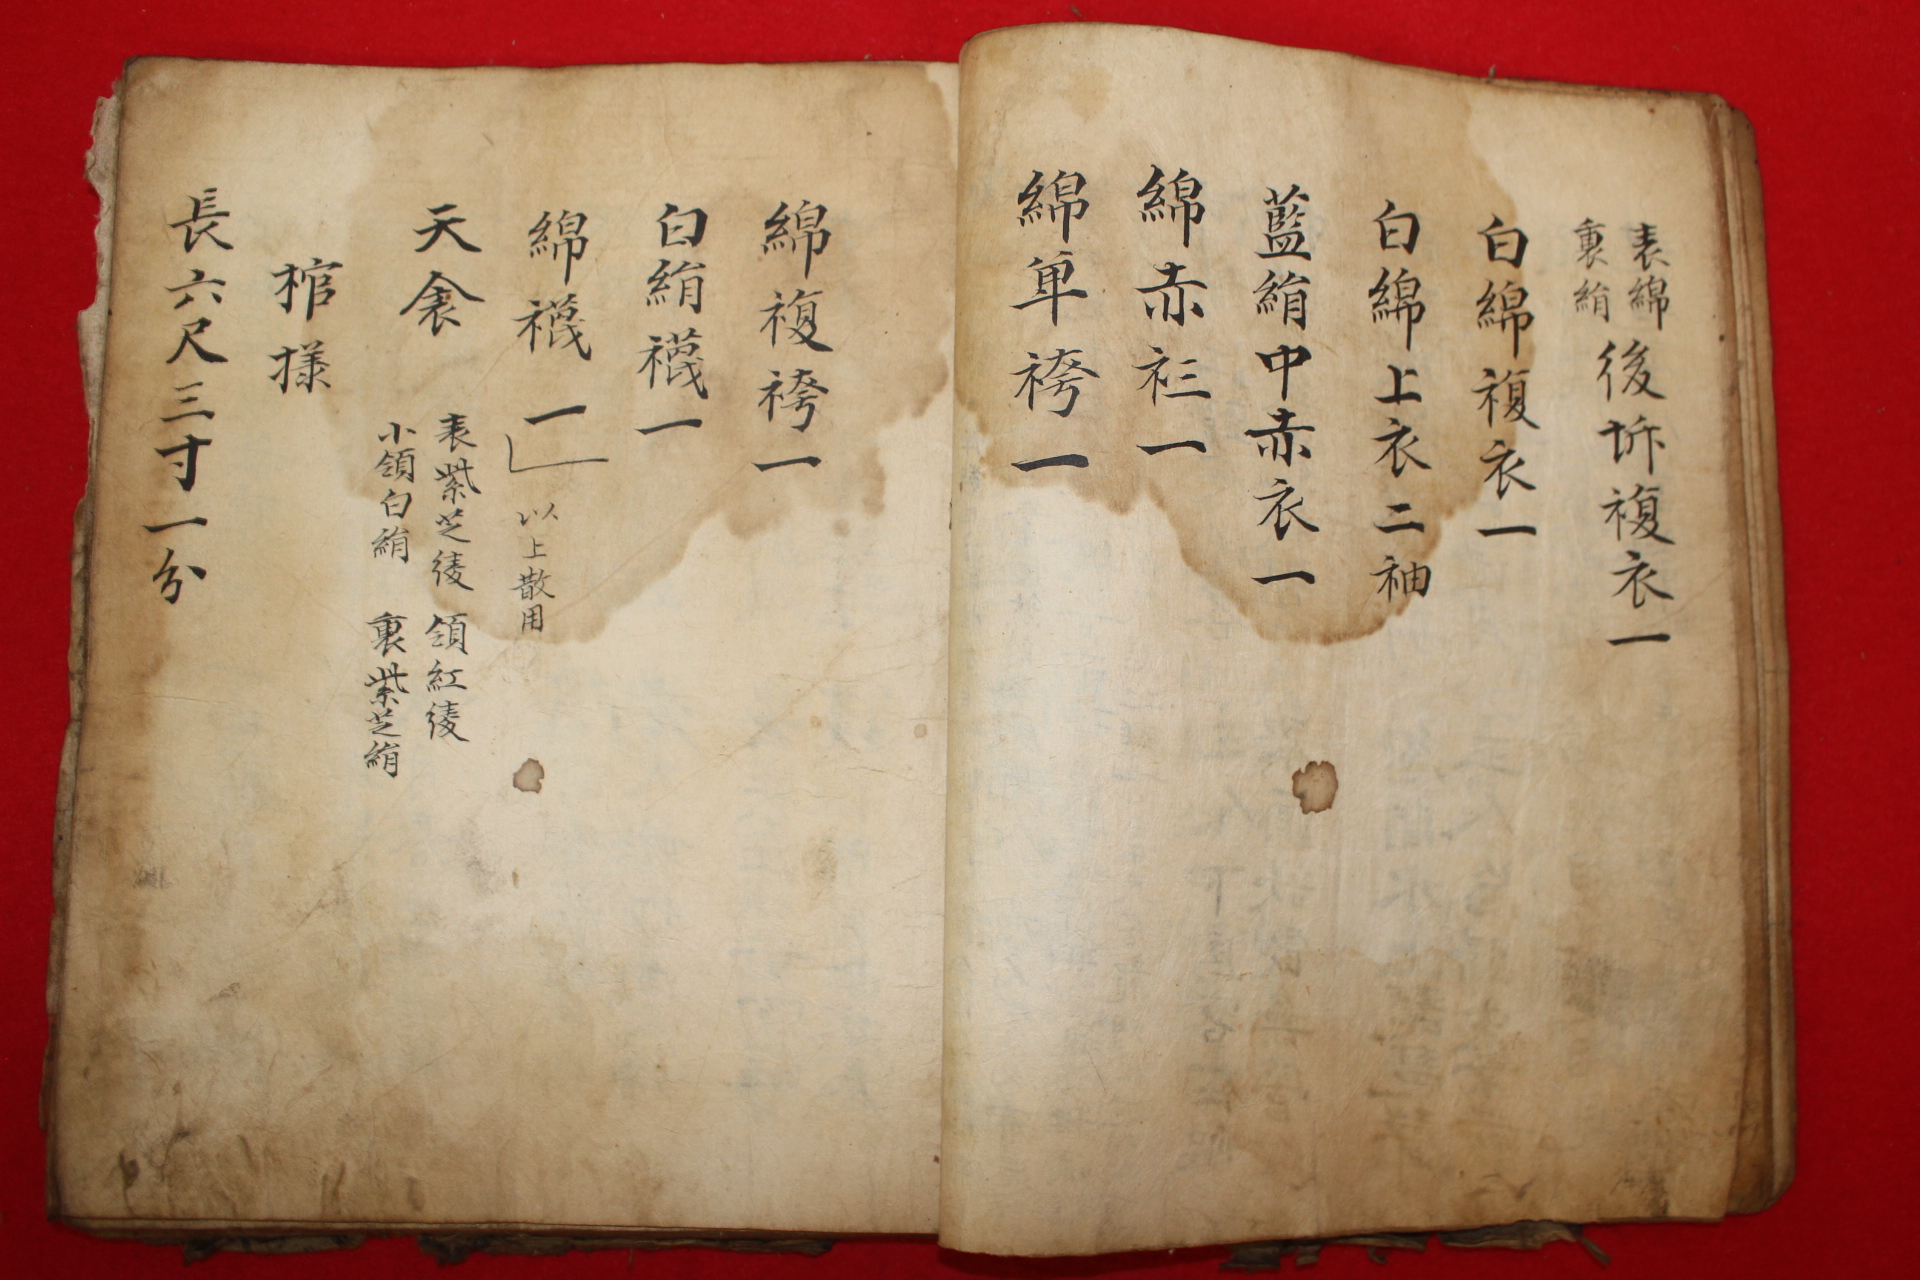 表綿
裏絹
後坼複衣一
白綿複衣一
白綿上衣二袖
藍絹中赤衣一
綿赤衫一
綿单袴一
綿複袴一
白絹襪一
綿襪一
以上散用
天衾
表紫芝綾 領紅綾
小領白絹 裏紫芝絹
棺樣
長六尺三寸一分